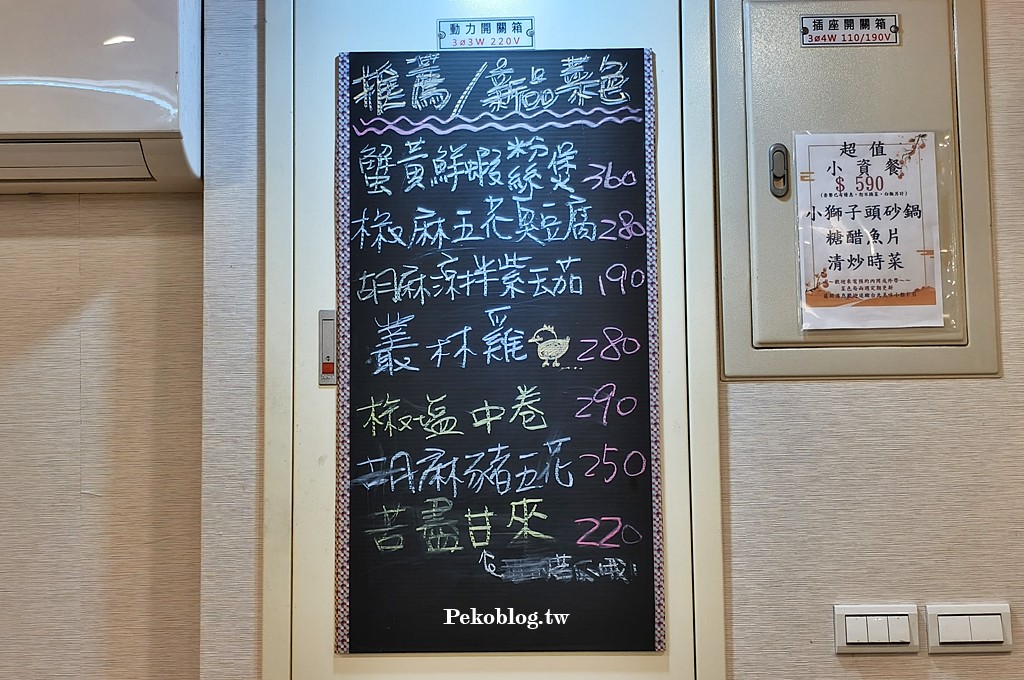 動力開關箱
3ø3W 220V
推薦/新品菜色
蟹黃鮮蝦粉絲煲 360
椒麻五花臭豆腐 280
胡麻涼拌紫茄 190
叢林雞 280
椒塩中卷 290
胡麻豬五花 250
苦盡甘來 220
苦瓜哦!
Pekoblog.tw
插座開關箱
3ø4W 110/190V
超值
小資餐
$ 590
小獅子頭砂鍋
糖醋魚片
清炒時菜